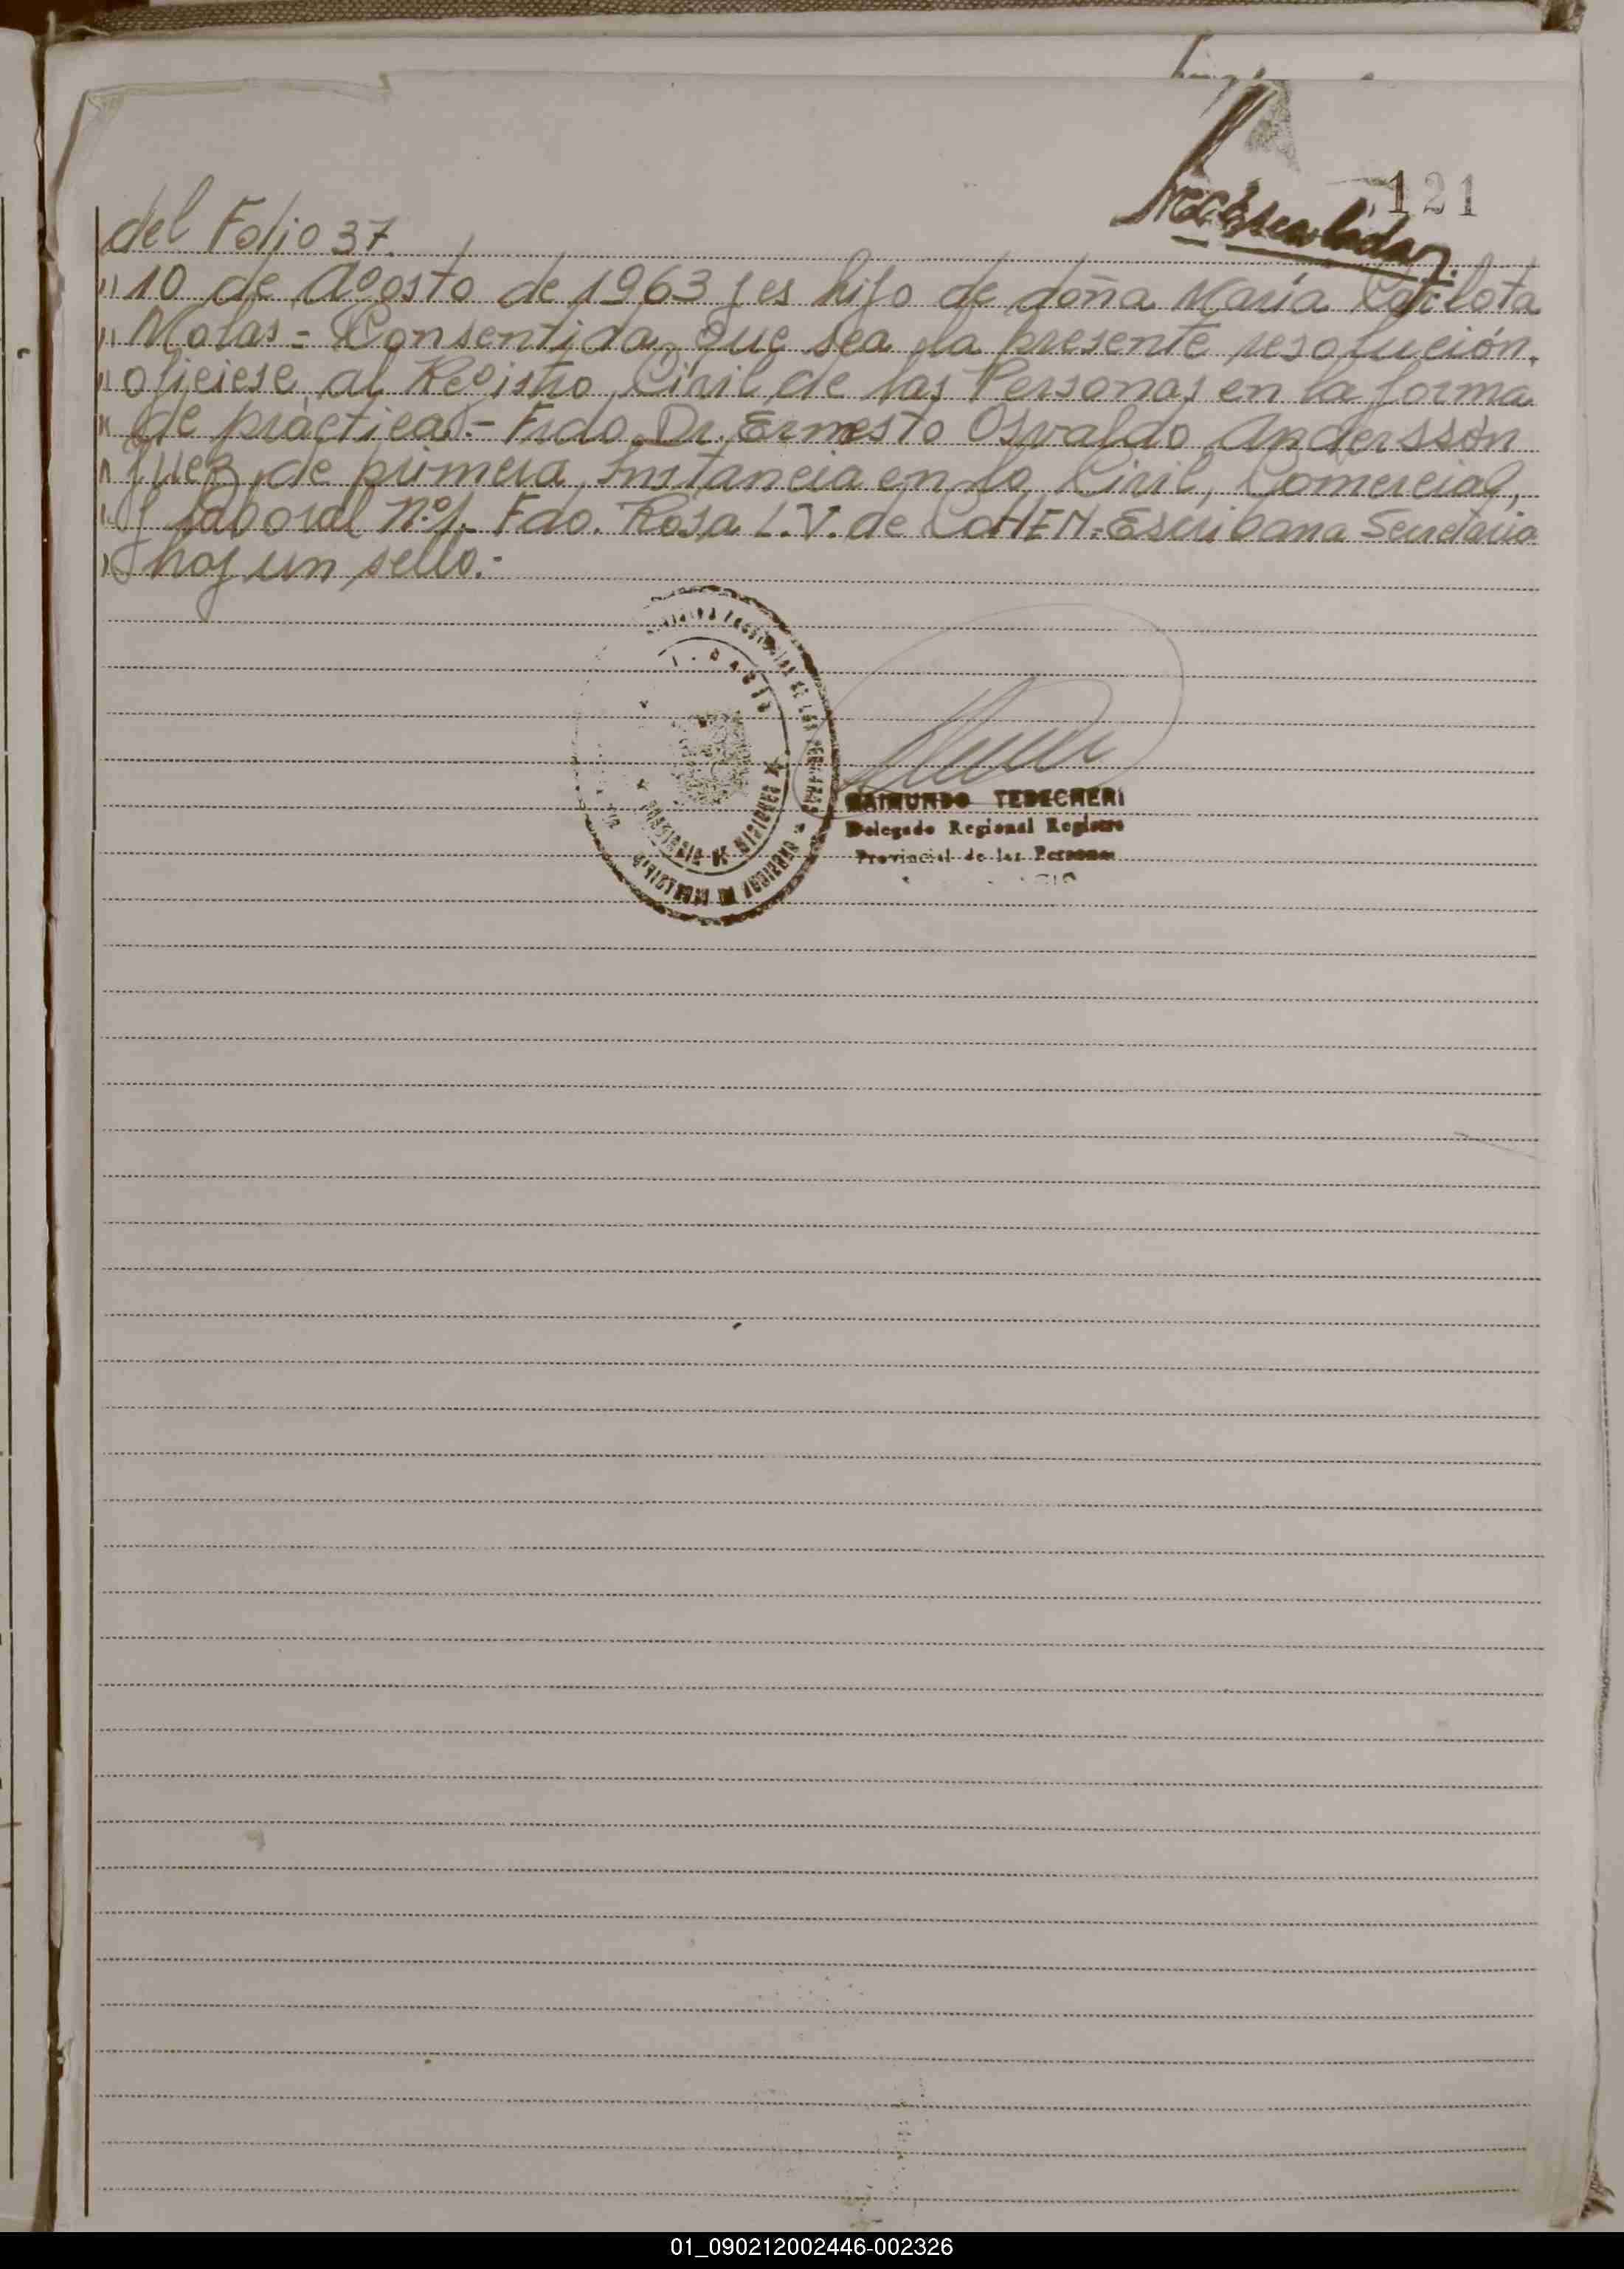 121
del Folio 37.
" 10 de Agosto de 1963 y es hijo de doña María Carlota
" Molas = Consentida que sea la presente resolución.
" ofíciese al Registro Civil de las Personas en la forma
" de práctica.- Frdo. Dr. Ernesto Osvaldo Anderssón
" Juez de primera Instancia en lo Civil, Comercial,
" y Laboral nº1.- Fdo. Rosa L.V. de COHEN - Escribana Secretaria
" hay un sello.-
RAIMUNDO TEDECHERI
Delegado Regional Registro
Provincial de las Personas
01_090212002446-002326